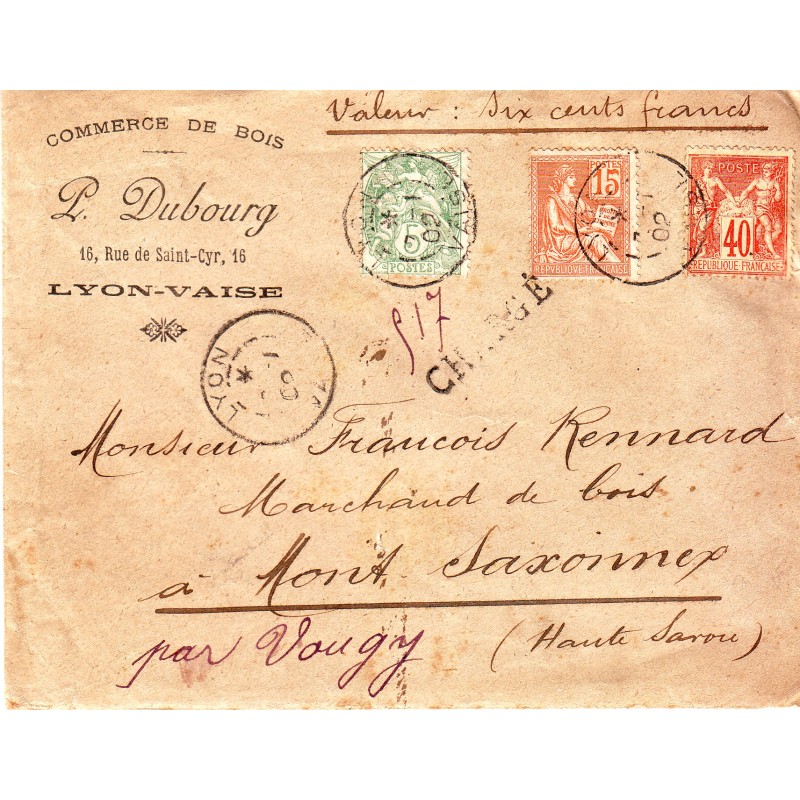 Valeur : Six cents francs
COMMERCE DE BOIS
P. Dubourg
16, Rue de Saint-Cyr, 16
LYON-VAISE
5
POSTES
POSTES
15
REPUBLIQUE FRANÇAISE
POSTE
40
REPUBLIQUE FRANÇAISE
02
02
517
CHARGÉ
LYON
Monsieur Francois Rennard
Marchand de bois
à Mont Saxonnex
par Vougy (Haute Savoie)